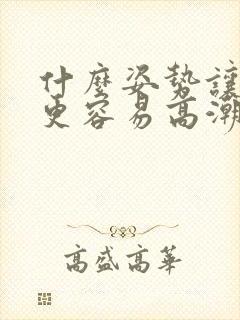 什麼姿勢讓
更容易高潮
高盛高華